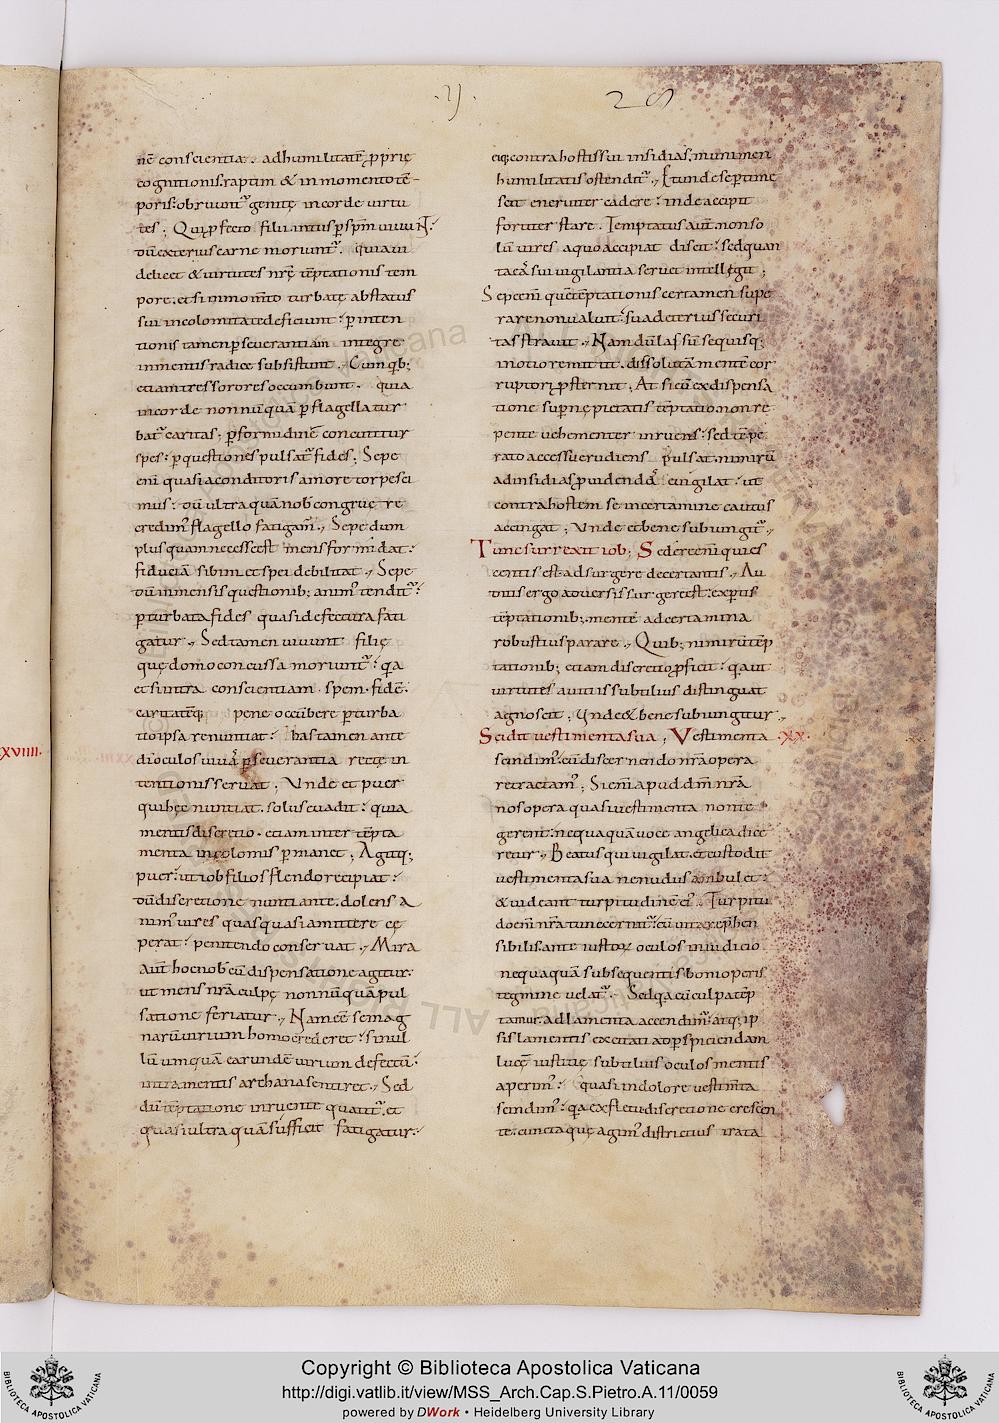 .II. 28
nē conscientiā. adhumilitatē ꝓprię
cognitionis. raptim & inmomento tē-
poris: obruunt᷑ genitę incorde virtu
tes; Qui ꝑfecto filii intus ꝑ spm̄ vivunt:
dū exterius carne moriunt᷑. quia vi
delicet & virtutes nr̄ę tēptationis tem
pore. et si inmom̄to turbatę abstatus
sui incolomitate deficiunt: ꝑ inten
tionis tamen ꝑseverantiam integre
inmentis radice subsistunt. Cum qb;
etiam tres sorores occumbunt. quia
incorde nonnūquā ꝑ flagella tur
bat᷑ caritas; ꝑ formidinē concutitur
spes: ꝑ questiones pulsat᷑ fides; Sepe
eni quasi aconditoris amore torpesci
mus: dū ultra quā nob congruę re
credim᷒ flagello fatigari. Sepe dum
plus quam necesse est mens formidat:
fiduciā sibimet spei debilitat. Sepe
dū inmensis questionib; anim᷒ tendit᷑:
ꝑturbata fides quasi defectura fati
gatur. Sed tamen vivunt filię
quę domo concussa moriunt᷑: qa
et si intra conscientiam. spem. fidē.
caritatēq; pene occūbere ꝑturba
tio ipsa renuntiat: has tamen ante
dī oculos vivā ꝑseverantia recte in
tentionis servat; Unde et puer
qui hęc nuntiat. solus evadit: quia
mentis discretio. etiam inter tēpta
menta incolomis ꝑmanet; Agitq;
puer: ut iob filios flendo recipiat:
dū discretione nuntiante. dolens a
nim᷒ vires quas quasi amittere cę
perat: penitendo conservat. Mira
aut̄ hoc nob cū dispensatione agitur:
ut mens nr̄a culpę nonnūquā pul
satione feriatur. Nam eē se mag
narū virium homo crederet: si nul
lū umquā earundē virium defectū:
intra mentis archana sentiret. Sed
dū tēptatione inruente quatit᷑. et
quasi ultra quā sufficit fatigatur:
eiq; contra hostis sui insidias. munimen
humilitatis ostendit᷑. Et unde se ꝑtime
scit enerviter cadere: inde accipit
fortiter stare. Temptatus aut̄ non so
lū vires aquo accipiat discit: sed quan
ta eas sibi vigilantia servet intellegit;
Sepe eni quē tēptationis certamen supe
rare non valuit: sua deterius securi
tas stravit. Nam dū lassū se quisq;
in otio remittit. dissolutā mentē cor
ruptori ꝓsternit; At si cū ex dispensa
tione supernę pietatis tēptatio non re
pente vehementer inruens: sed tēpe
rato accessu erudiens pulsat. nimirū
ad insidias ꝓvidendas evigilat: ut
contra hostem se in certamine cautus
accingat; Unde et bene subiungit᷑.
Tunc surrexit iob; Sedere eni quies
centis est. adsurgere decertantis. Au
ditis ergo adversis surgere est: expertis
tēptationib; mentē ad certamina
robustius parare. Quib; nimirū tēp
tationib; etiam discretio ꝓficit: qa ut
virtutes avitiis subtilius distinguat
agnoscit; Unde & bene subiungitur.
Scidit vestimenta sua; Vestimenta ·XX·
scindim᷒. cū discernendo nr̄a opera
retractam᷒; Si eni apud dm̄ nr̄a
nos opera quasi vestimenta non te
gerent: nequaquā voce angelica dice
retur. Beatus qui vigilat. et custodit
vestimenta sua ne nudus ambulet:
& videant turpitudinē ei᷒. Turpitu
do eni nr̄a tunc cernit᷑: cū vita reprehen
sibilis ante iustorum oculos in iudicio
nequaquā subsequentis boni operis
tegmine velat᷑. Sed qa cū culpa tēp
tamur. ad lamenta accendim᷒: atq; ip
sis lamentis excitati ad ꝑspiciendam
lucē iustitię subtilius oculos mentis
aperim᷒: quasi in dolore vestim̄ta
scindim᷒: qa ex fletu discretione crescen
te. cuncta quę agim᷒ districtius irata
XVIIII.
Copyright © Biblioteca Apostolica Vaticana
http://digi.vatlib.it/view/MSS_Arch.Cap.S.Pietro.A.11/0059
powered by DWork • Heidelberg University Library
BIBLIOTECA APOSTOLICA VATICANA
BIBLIOTECA APOSTOLICA VATICANA